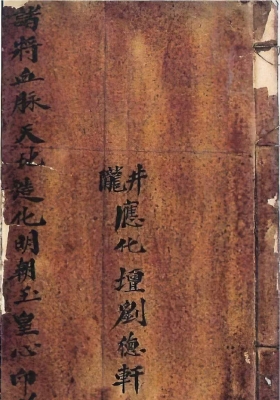 井隴
應化壇劉德軒
諸將血脈天地造化明朝玉皇心印